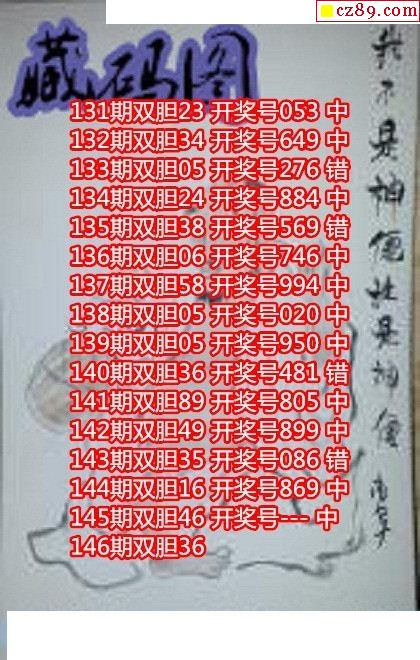 cz89.com
藏码图
131期双胆23 开奖号053 中
132期双胆34 开奖号649 中
133期双胆05 开奖号276 错
134期双胆24 开奖号884 中
135期双胆38 开奖号569 错
136期双胆06 开奖号746 中
137期双胆58 开奖号994 中
138期双胆05 开奖号020 中
139期双胆05 开奖号950 中
140期双胆36 开奖号481 错
141期双胆89 开奖号805 中
142期双胆49 开奖号899 中
143期双胆35 开奖号086 错
144期双胆16 开奖号869 中
145期双胆46 开奖号--- 中
146期双胆36
我不是神仙 是神仙